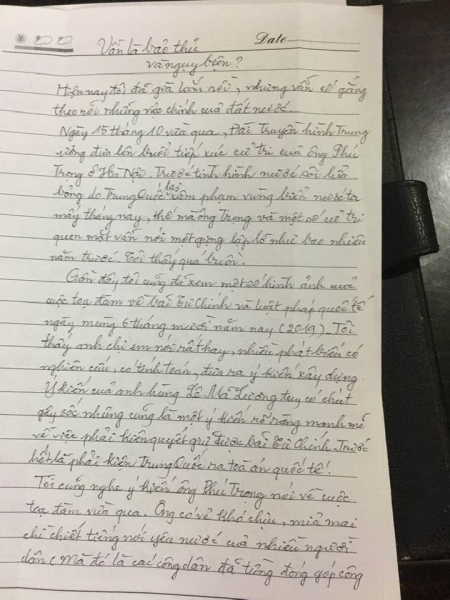 Date
Vẫn là bảo thủ
và ngụy biện?
Hiện nay tôi đã già lắm rồi, nhưng vẫn cố gắng
theo rõi những việc chính của đất nước.
Ngày 15 tháng 10 vừa qua, Đài Truyền hình Trung
ương đưa lên buổi tiếp xúc cử tri của ông Phú
Trọng ở Hà Nội. Trước tình hình nước sôi lửa
bỏng do Trung Quốc lại xâm phạm vùng biển nước ta
mấy tháng nay, thế mà ông Trọng và một số cử tri
quen mặt vẫn nói một giọng lập lờ như bao nhiêu
năm trước. Tôi thấy quá buồn.
Gần đây tôi cũng đã xem một số hình ảnh của
cuộc tọa đàm về bãi Tư Chính và luật pháp quốc tế
ngày mùng 6 tháng mười năm nay (2019). Tôi
thấy anh chị em nói rất hay, nhiều phát biểu có
nghiên cứu, có tính toán, đưa ra ý kiến xây dựng.
Ý kiến của anh hùng Lê Mã Lương tuy có chút
gây sốc nhưng cũng là một ý kiến rõ ràng mạnh mẽ
về việc phải kiên quyết giữ được bãi Tư Chính. Trước
hết là phải kiện Trung Quốc ra toà án quốc tế!
Tôi cũng nghe ý kiến ông Phú Trọng nói về cuộc
tọa đàm vừa qua. Ông có vẻ khó chịu, mỉa mai
chì chiết tiếng nói yêu nước của nhiều người
dân (Mà đó là các công dân đã từng đóng góp công